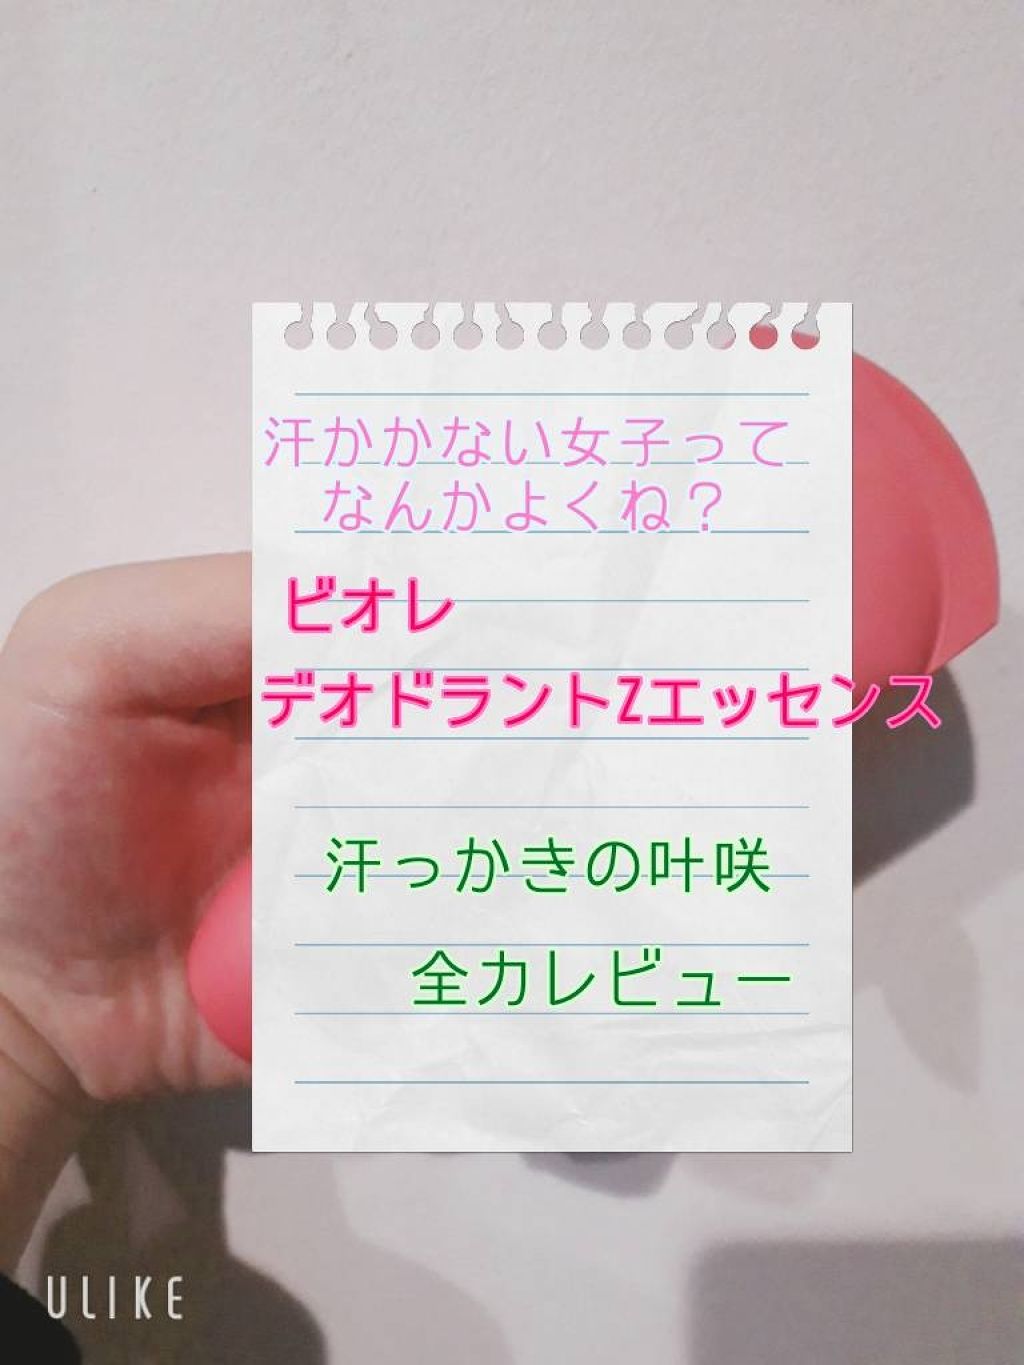 汗かかない女子って
なんかよくね？
ビオレ
デオドラントZエッセンス
汗っかきの叶咲
全力レビュー
ULIKE